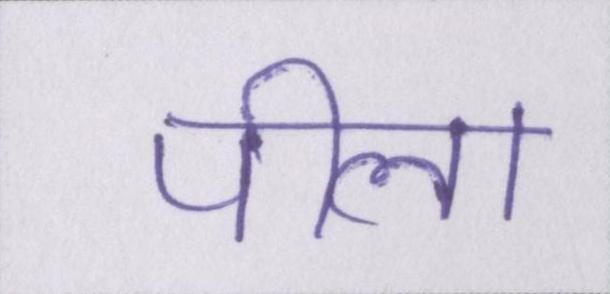 पीला